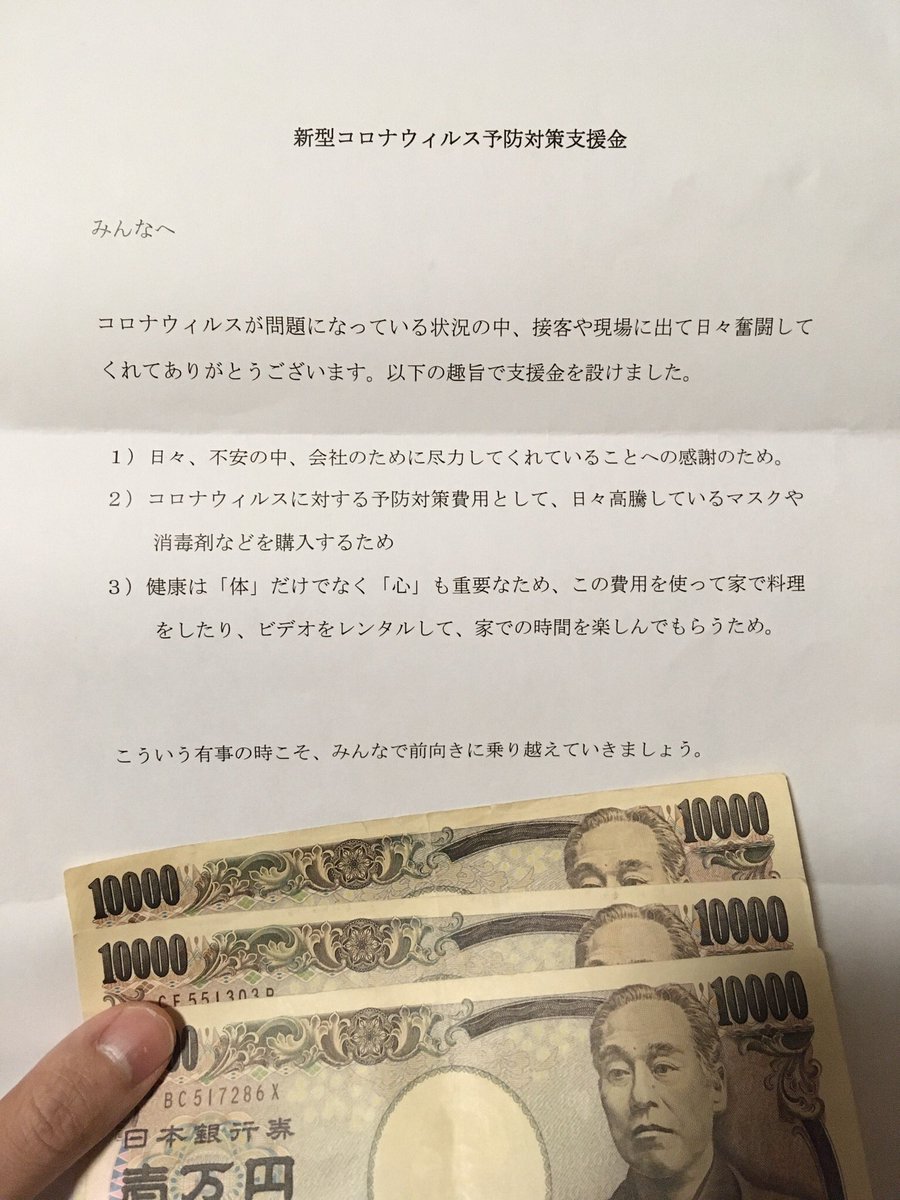 新型コロナウィルス予防対策支援金
みんなへ
コロナウィルスが問題になっている状況の中、接客や現場に出て日々奮闘して
くれてありがとうございます。以下の趣旨で支援金を設けました。
1）日々、不安の中、会社のために尽力してくれていることへの感謝のため。
2）コロナウィルスに対する予防対策費用として、日々高騰しているマスクや
消毒剤などを購入するため
3）健康は「体」だけでなく「心」も重要なため、この費用を使って家で料理
をしたり、ビデオをレンタルして、家での時間を楽しんでもらうため。
こういう有事の時こそ、みんなで前向きに乗り越えていきましょう。
10000 10000
10000 10000
10000
BC517286X
日本銀行券
壱万円